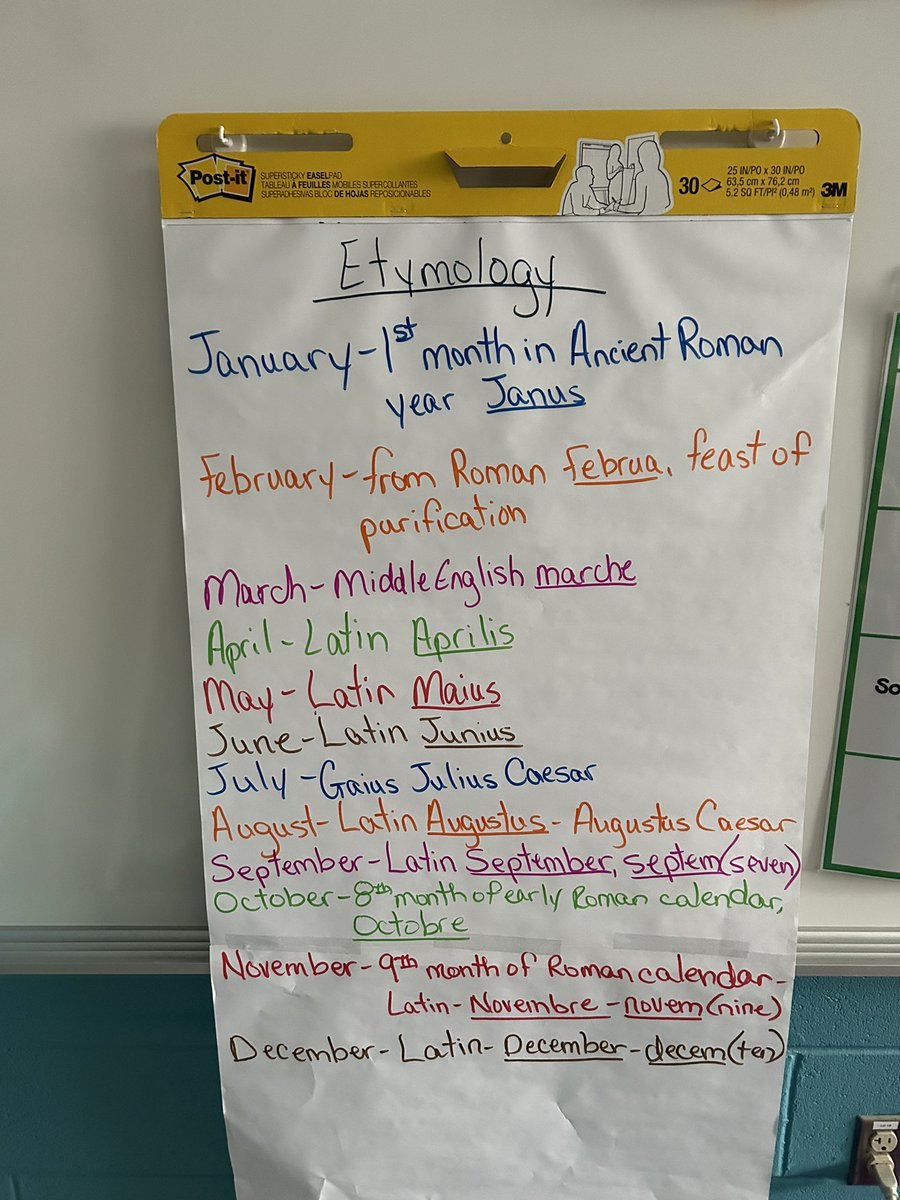 Post-it
SUPERSTICKY EASELPAD
TABLEAU À FEUILLES MOBILES SUPERCOLLANTES
SUPERADHESIVAS BLOC DE HOJAS REPOSICIONABLES
30
25 IN/PO x 30 IN/PO
63,5 cm x 76,2 cm
5.2 SQ FT/PI² (0,48 m²)
3M
Etymology
January-1st month in Ancient Roman
year Janus
February-from Roman Februa, feast of
purification
March-Middle English marche
April-Latin Aprilis
May-Latin Maius
June-Latin Junius
July-Gaius Julius Caesar
August-Latin Augustus-Augustus Caesar
September-Latin September, septem(seven)
October-8th month of early Roman calendar,
Octobre
November-9th month of Roman calendar-
Latin-Novembre-novem(nine)
December-Latin-December-decem(ten)
So